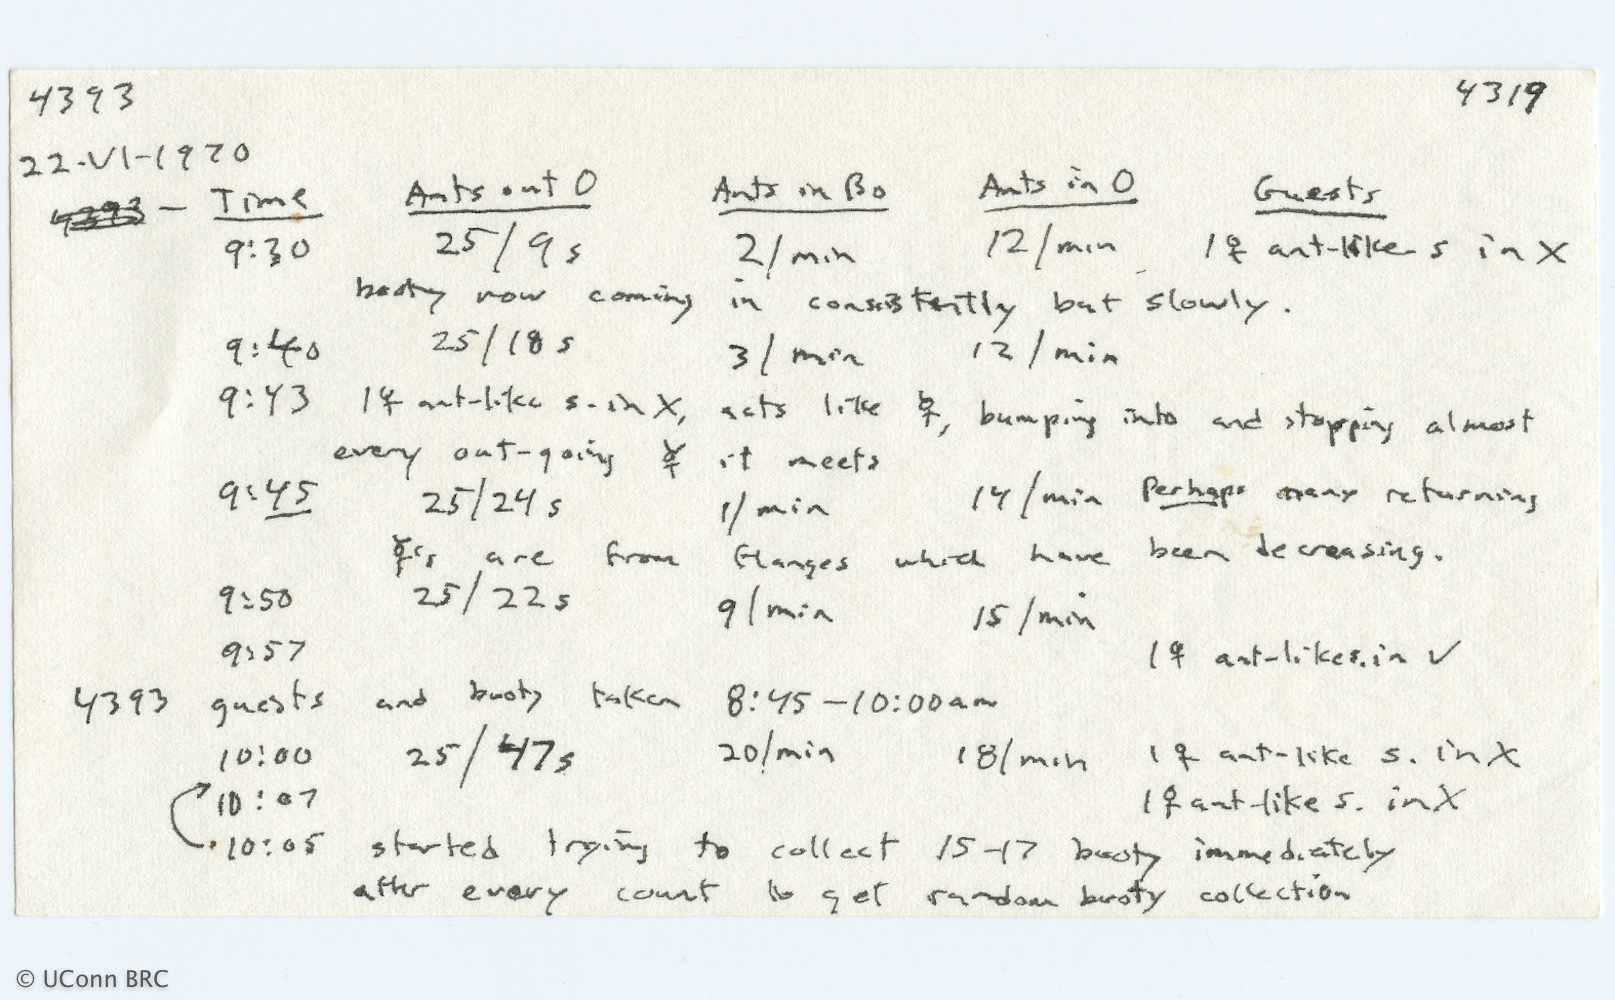 4393 4319
22-VI-1970
4393 — Time Ants out O Ants in Bo Ants in O Guests
9:30 25/9s 2/min 12/min 1♀ ant-like s in X
booty now coming in consistently but slowly.
9:40 25/18s 3/min 12/min
9:43 1♀ ant-like s. in X, acts like ☿, bumping into and stopping almost
every out-going ☿ it meets
9:45 25/24s 1/min 14/min Perhaps many returning
☿'s are from flanges which have been decreasing.
9:50 25/22s 9/min 15/min
9:57 1♀ ant-like s. in V
4393 guests and booty taken 8:45-10:00am
10:00 25/47s 20/min 18/min 1♀ ant-like s. in X
10:07 1♀ ant-like s. in X
10:05 started trying to collect 15-17 booty immediately
after every count to get random booty collection
© UConn BRC